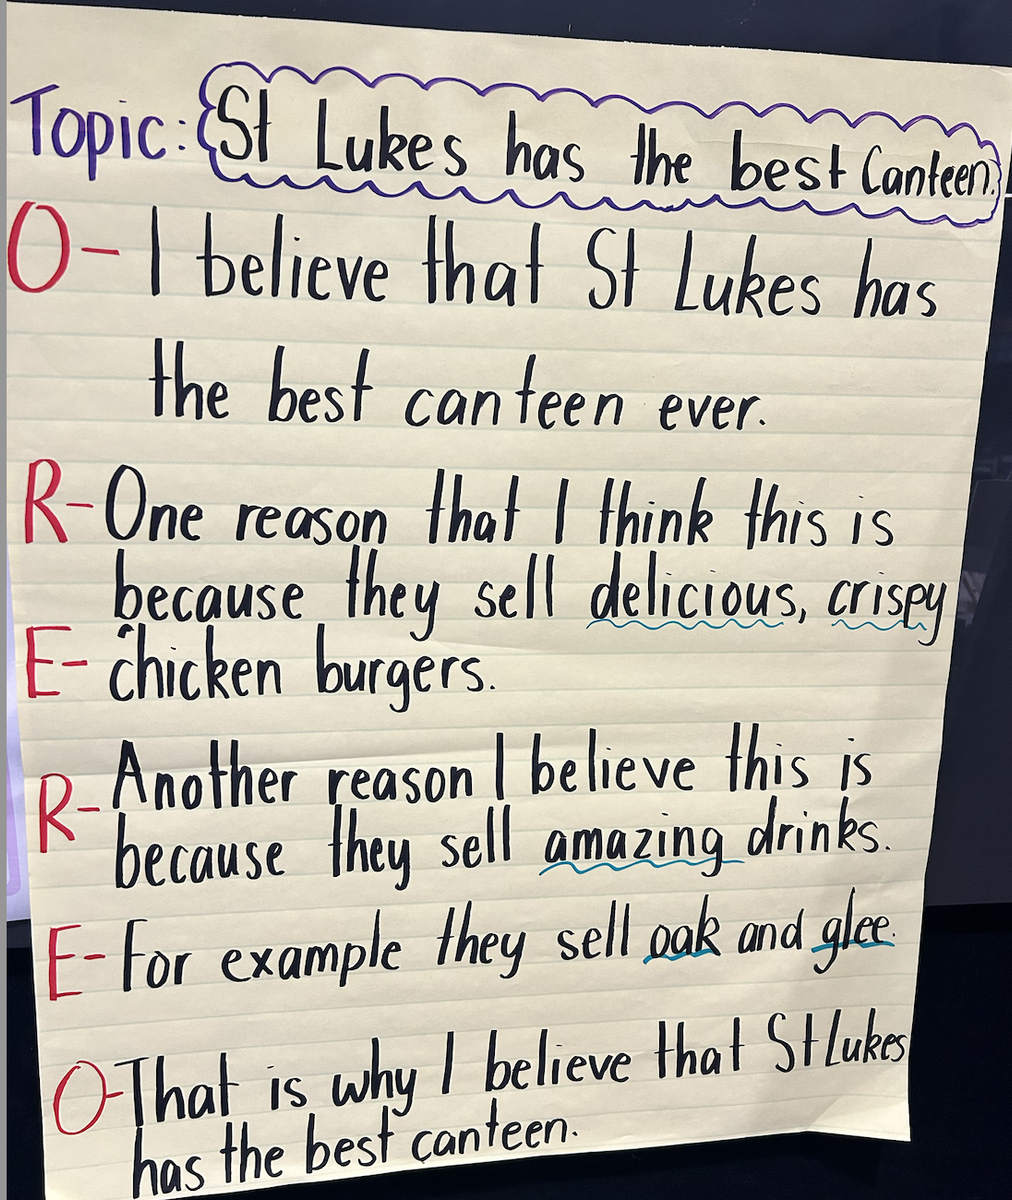 Topic: St Lukes has the best Canteen.
O- I believe that St Lukes has
the best canteen ever.
R- One reason that I think this is
because they sell delicious, crispy
E- chicken burgers.
R- Another reason I believe this is
because they sell amazing drinks.
E- For example they sell oak and glee.
O- That is why I believe that St Lukes
has the best canteen.